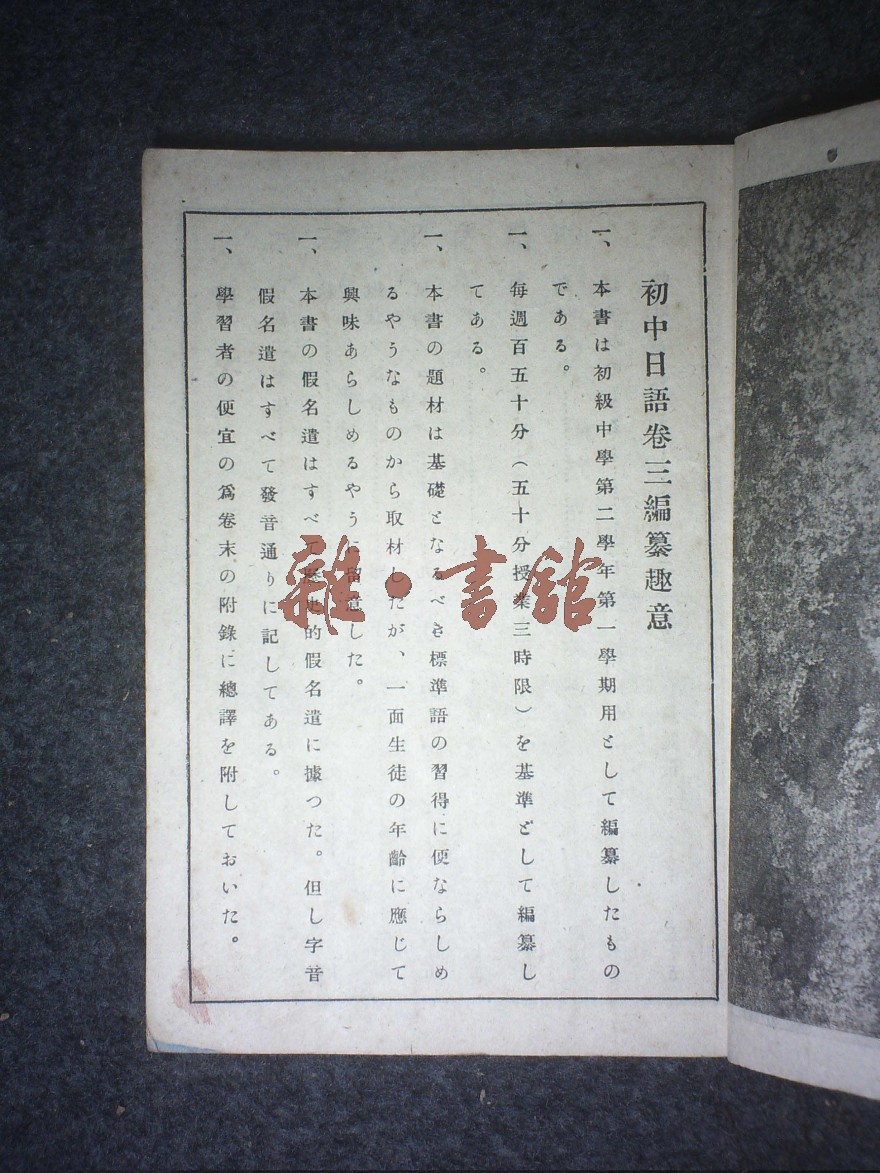 初中日語卷三編纂趣意
一、本書は初級中學第二學年第一學期用として編纂したもの
である。
一、每週百五十分（五十分授業三時限）を基準として編纂し
てある。
一、本書の題材は基礎となるべき標準語の習得に便ならしめ
るやうなものから取材したが、一面生徒の年齡に應じて
興味あらしめるやうに留意した。
一、本書の假名遣はすべて歷史的假名遣に據つた。但し字音
假名遣はすべて發音通りに記してある。
一、學習者の便宜の爲卷末の附錄に總譯を附しておいた。
雜·書館